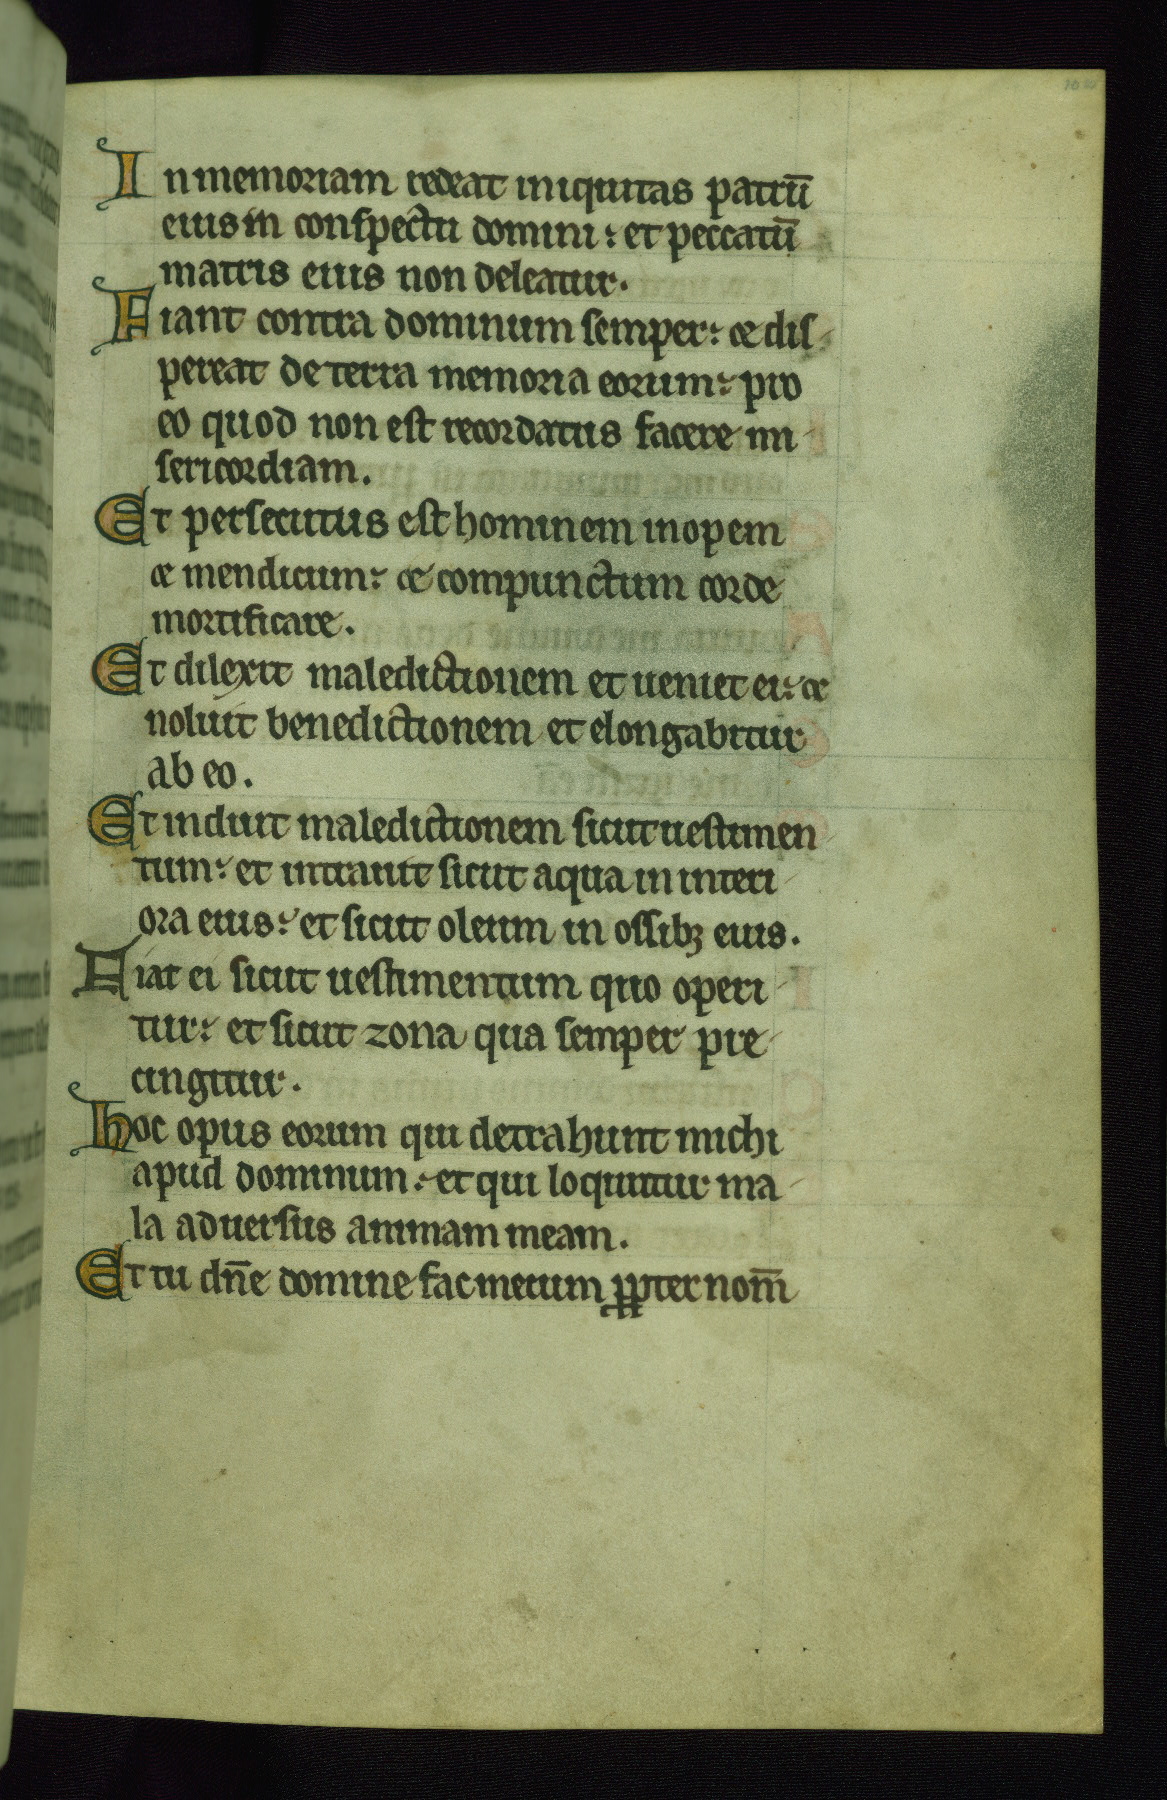 In memoriam redeat iniquitas patrū
eius in conspectu domini: et peccatū
matris eius non deleatur.
Fiant contra dominum semper: & dis
pereat de terra memoria eorum: pro
eo quod non est recordatus facere mi
sericordiam.
Et persecutus est hominem inopem
& mendicum: & compunctum corde
mortificare.
Et dilexit maledictionem et ueniet ei: &
noluit benedictionem et elongabitur
ab eo.
Et induit maledictionem sicut uestimen
tum: et intrauit sicut aqua in interi
ora eius: et sicut oleum in ossibꝫ eius.
Fiat ei sicut uestimentum quo operi
tur: et sicut zona qua semper pre
cingitur.
Hoc opus eorum qui detrahunt michi
apud dominum: et qui loquntur ma
la aduersus animam meam.
Et tu dn̄e domine fac mecum ꝓpter nom̄